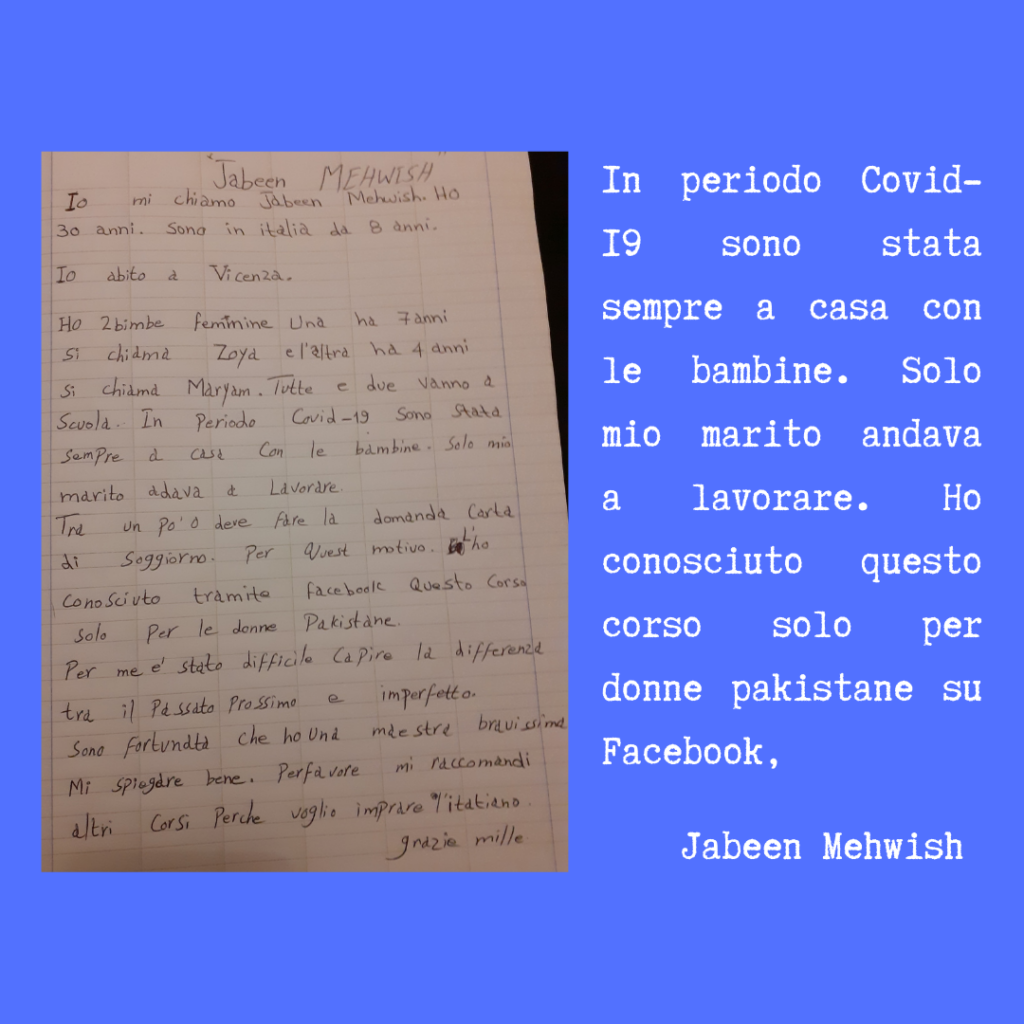 "Jabeen MEHWISH"
Io mi chiamo Jabeen Mehwish. Ho
30 anni. Sono in italia da 8 anni.
Io abito a Vicenza.
Ho 2bimbe feminine Una ha 7anni
Si chiama Zoya e l'altra ha 4 anni
Si chiama Maryam. Tutte e due vanno a
Scuola. In Periodo Covid-19 Sono Stata
Sempre a casa Con le bambine. Solo mio
marito adava a Lavorare.
Tra un po' o deve fare la domanda Carta
di Soggiorno. Per Quest motivo. L'ho
Conosciuto tramite facebook Questo Corso
Solo Per le donne Pakistane.
Per me e' stato difficile Capire la differenza
tra il Passato Prossimo e imperfetto.
Sono fortunata che ho una maestra bravissima
Mi spiegare bene. Perfavore mi raccomandi
altri Corsi Perche voglio imprare l'itatiano.
grazie mille
In periodo Covid-
I9 sono stata
sempre a casa con
le bambine. Solo
mio marito andava
a lavorare. Ho
conosciuto questo
corso solo per
donne pakistane su
Facebook,
Jabeen Mehwish